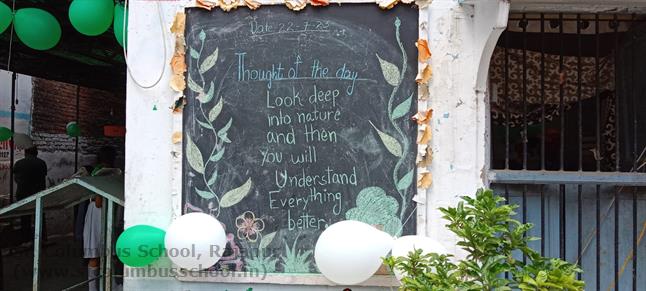 Date 22-7-23
Thought of the day
Look deep
into nature
and then
you will
Understand
Everything
better.
St. Columbus School, Rajapur,
(www.stcolumbusschool.in)